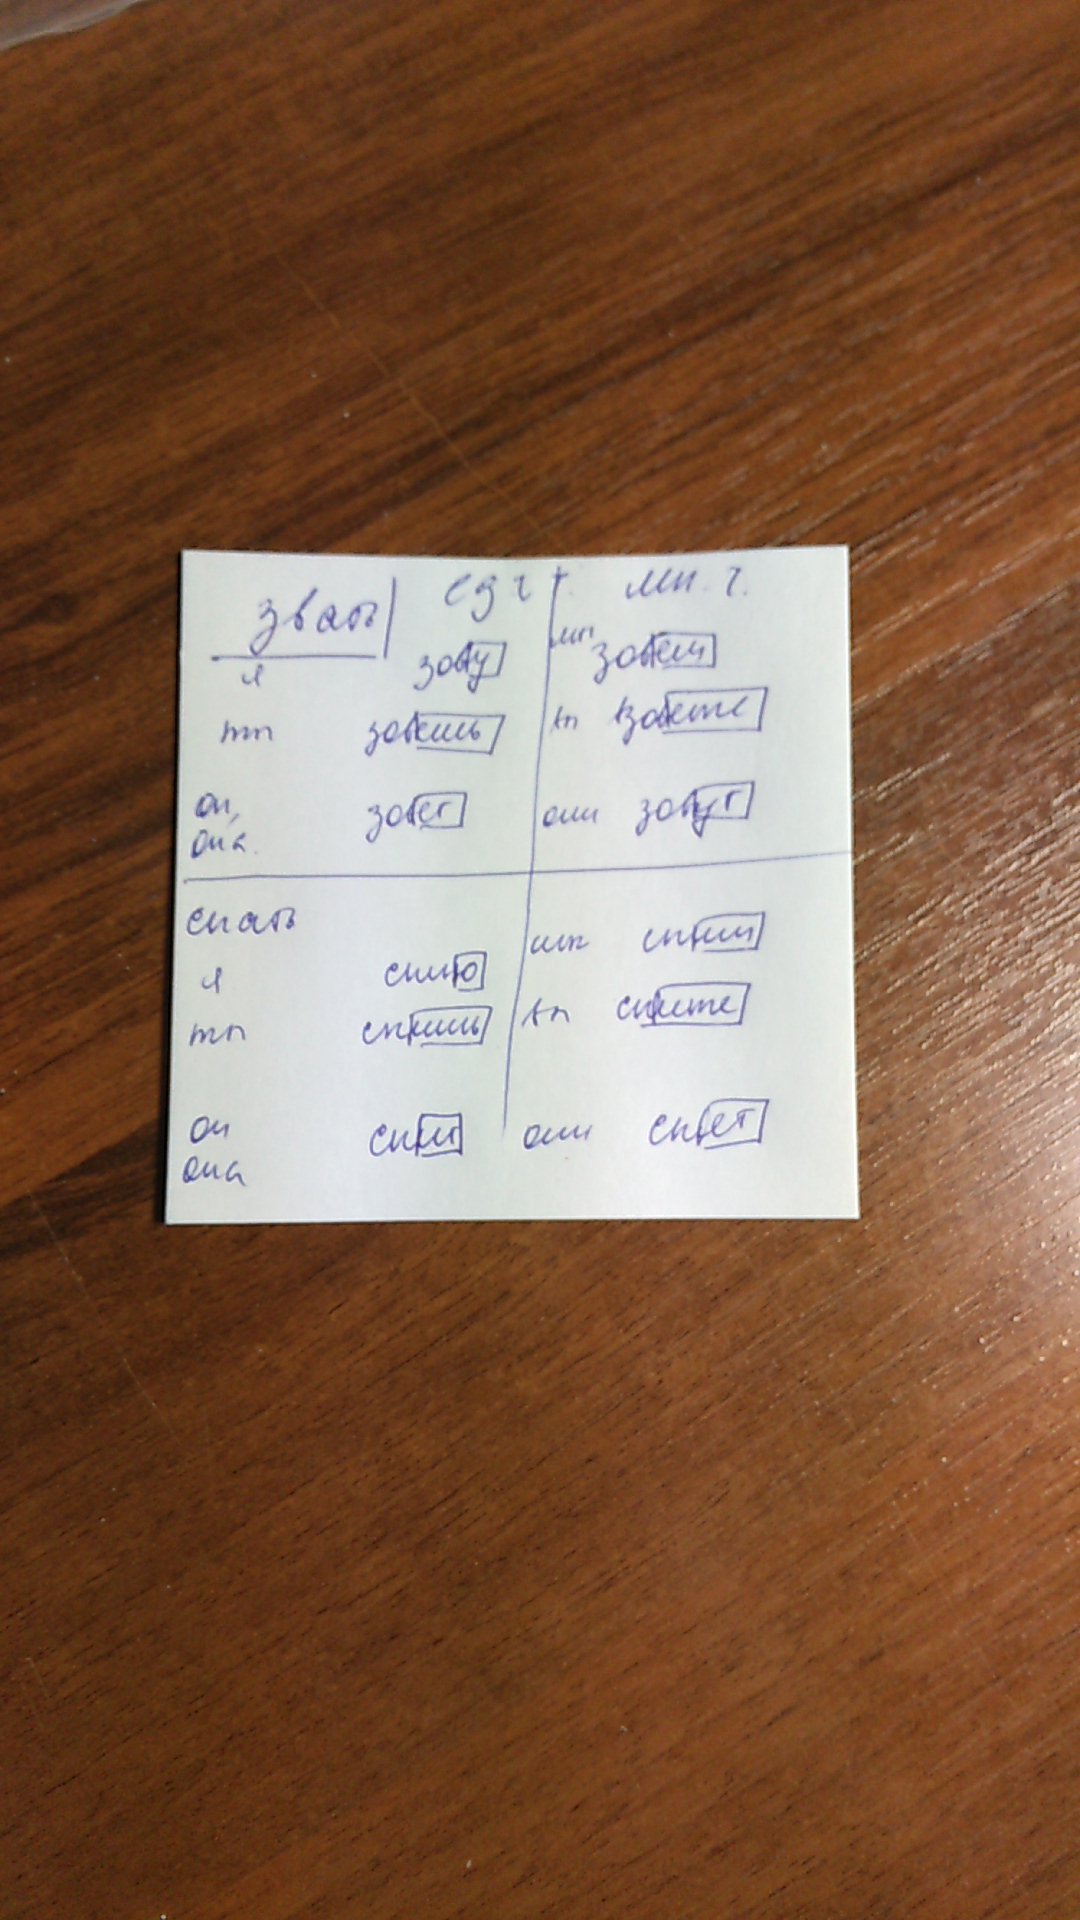 звать ед ч. мн. ч.
я зову мы зовем
ты зовешь вы зовете
он, она зовет они зовут
спать
я сплю мы спим
ты спишь вы спите
он она они спет